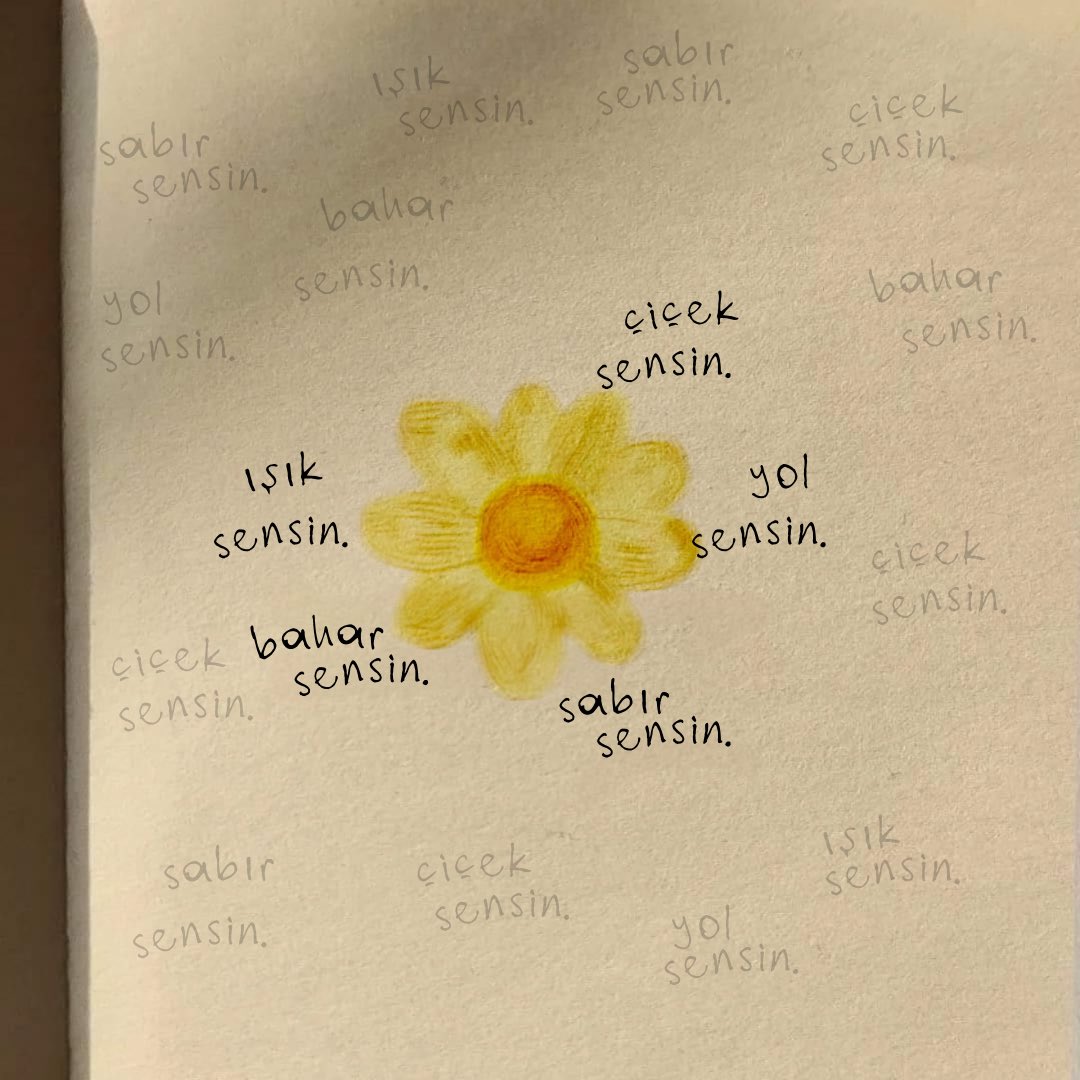 ışık
sensin.
sabır
sensin.
çiçek
sensin.
sabır
sensin.
bahar
sensin.
yol
sensin.
bahar
sensin.
çiçek
sensin.
ışık
sensin.
yol
sensin.
çiçek
sensin.
bahar
sensin.
çiçek
sensin.
sabır
sensin.
sabır
sensin.
çiçek
sensin.
ışık
sensin.
yol
sensin.